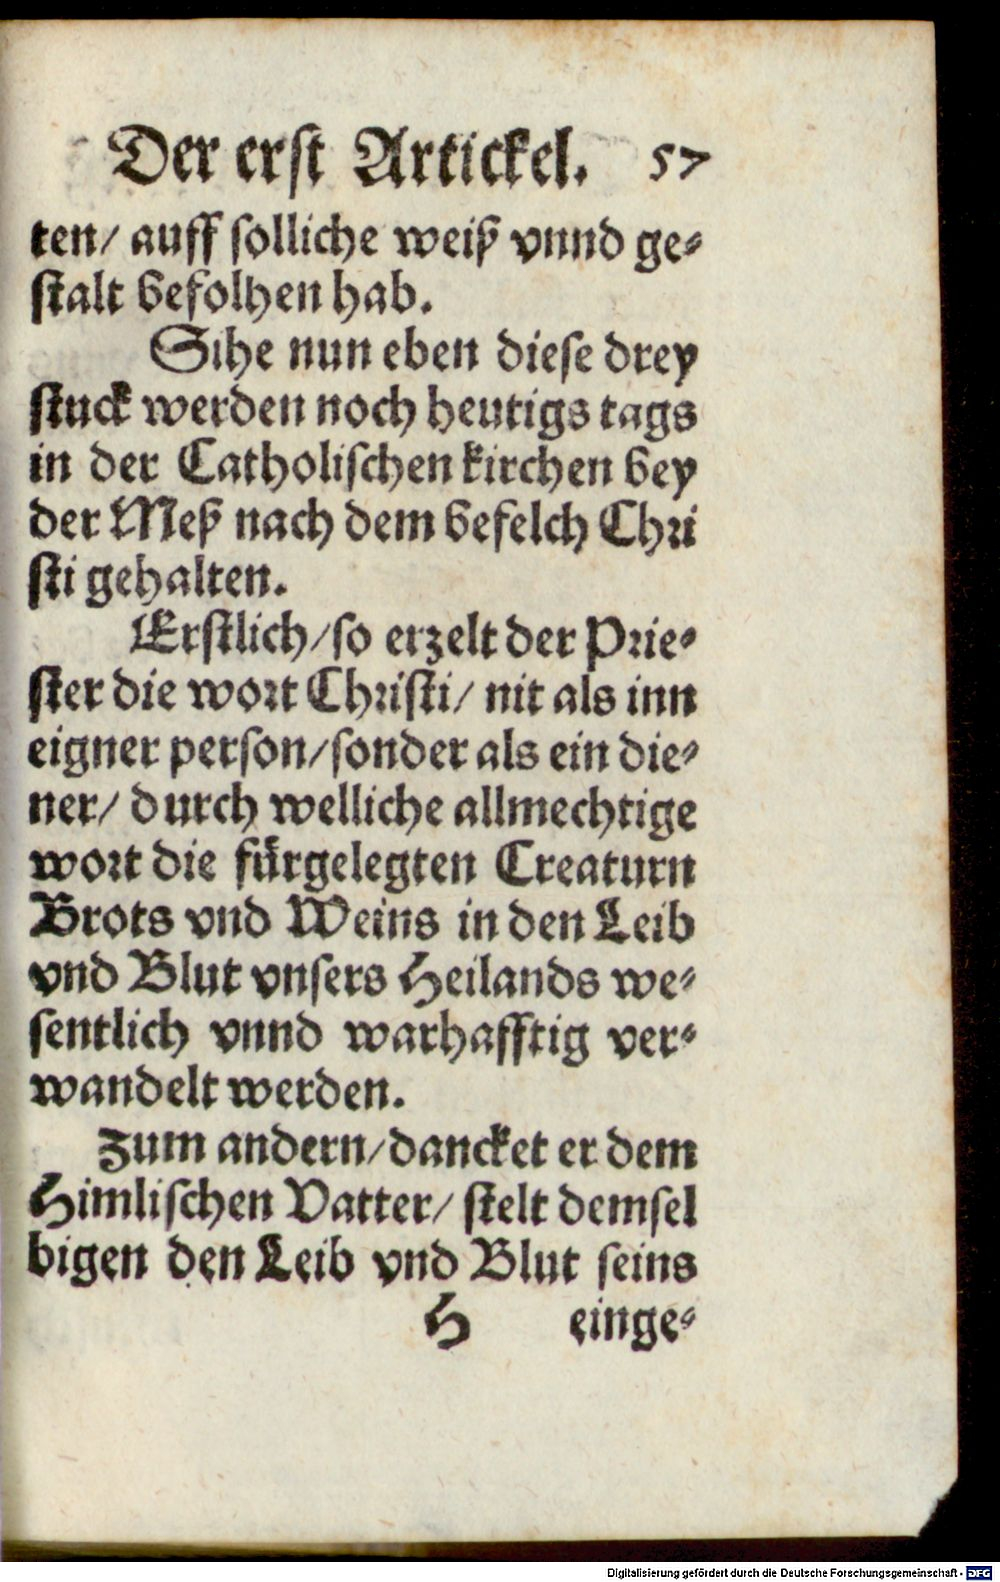 Der erst Artickel. 57
ten/ auff solliche weiß vnnd ge-
stalt befolhen hab.
Sihe nun eben diese drey
stuck werden noch heutigs tags
in der Catholischen kirchen bey
der Meß nach dem befelch Chri
sti gehalten.
Erstlich/ so erzelt der Prie-
ster die wort Christi/ nit als inn
eigner person/ sonder als ein die-
ner/ durch welliche allmechtige
wort die fürgelegten Creaturn
Brots vnd Weins in den Leib
vnd Blut vnsers Heilands we-
sentlich vnnd warhafftig ver-
wandelt werden.
Zum andern/ dancket er dem
Himlischen Vatter/ stelt demsel
bigen den Leib vnd Blut seins
H einge-
Digitalisierung gefördert durch die Deutsche Forschungsgemeinschaft - DFG